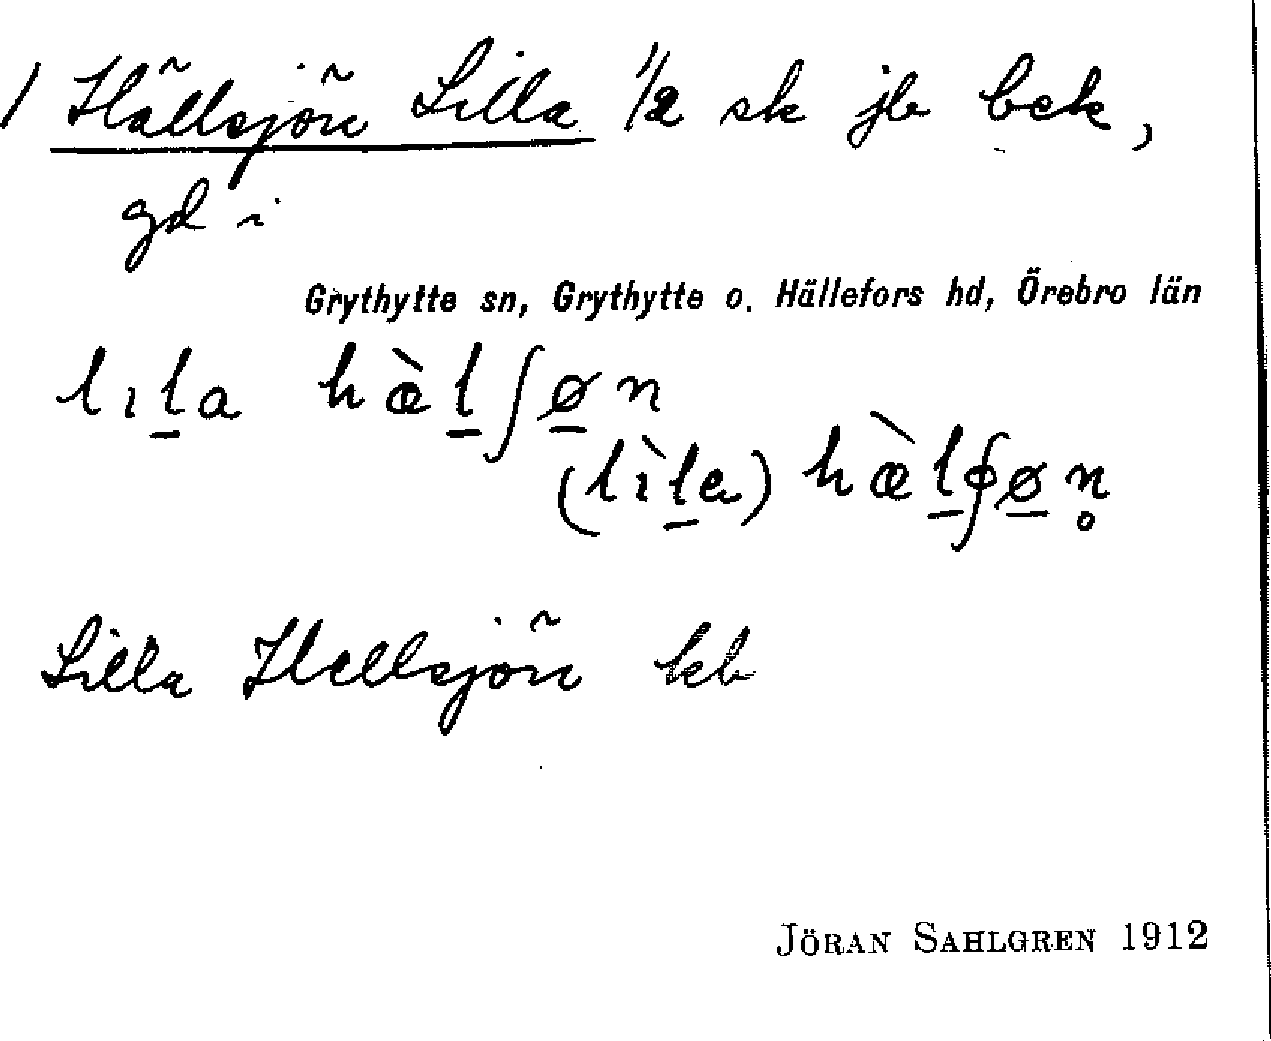 / Hällsjön Lilla 1/2 sk jb bek,
gd i
Grythytte sn, Grythytte o. Hällefors hd, Örebro län
lıl̠a hæ̀l̠ʃø̠n
(lı̀l̠a) hæ̀l̠ʃø̠n̥
Lilla Hellsjön kb
JÖRAN SAHLGREN 1912